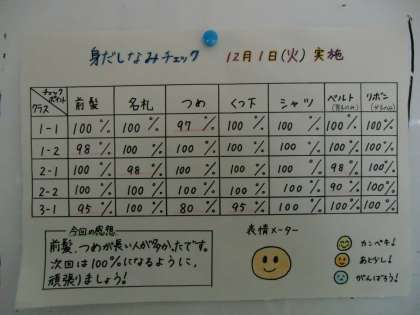 身だしなみチェック 12月1日(火) 実施
チェックポイント クラス 前髪 名札 つめ くつ下 シャツ ベルト(男子のみ) リボン(女子のみ)
1-1 100% 100% 97% 100% 100% 100% 100%
1-2 98% 100% 100% 100% 100% 100% 100%
2-1 100% 98% 100% 100% 100% 98% 100%
2-2 100% 100% 100% 100% 100% 90% 100%
3-1 95% 100% 80% 95% 100% 100% 100%
今回の感想
前髪、つめが長い人が多かったです。
次回は100%になるように、
頑張りましょう!
表情メーター
カンペキ!
あと少し!
がんばろう!